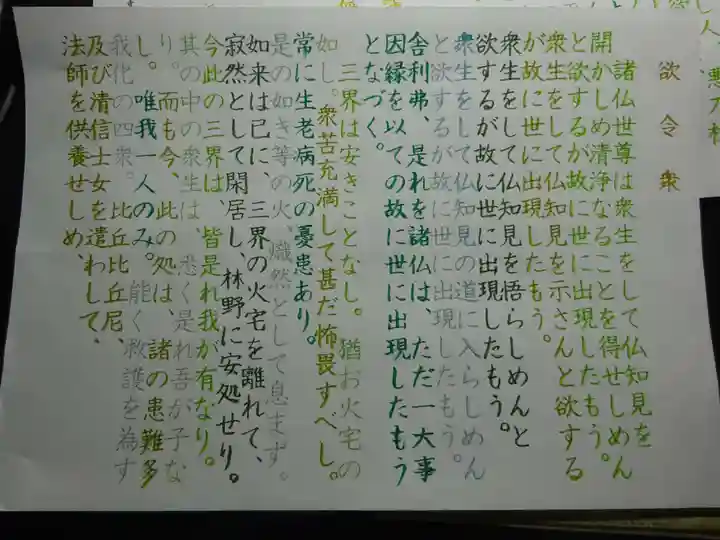 欲令衆
諸仏世尊は衆生をして仏知見を
開かしめ清浄なることを得せしめん
と欲するが故に世に出現したもう。
衆生をして仏知見を示さんと欲する
が故に世に出現したもう。
衆生をして仏知見を悟らしめんと
欲するが故に世に出現したもう。
衆生をして仏知見の道に入らしめん
と欲するが故に世に出現したもう。
舎利弗、是れを諸仏は、ただ一大事
因縁を以ての故に世に出現したもう
となづく。
三界は安きことなし。猶お火宅の
如し。衆苦充満して甚だ怖畏すべし。
常に生老病死の憂患あり。
是の如き等の火、熾然として息まず。
如来は已に、三界の火宅を離れて、
寂然として閑居し、林野に安処せり。
今此の三界は、皆是れ我が有なり。
其の中の衆生は、悉く是れ吾が子な
り。而も今、此の処は、諸の患難多
し。唯我一人のみ。能く救護を為す
我化の四衆。比丘比丘尼、
及び清信士女を遣わして、
法師を供養せしめ、